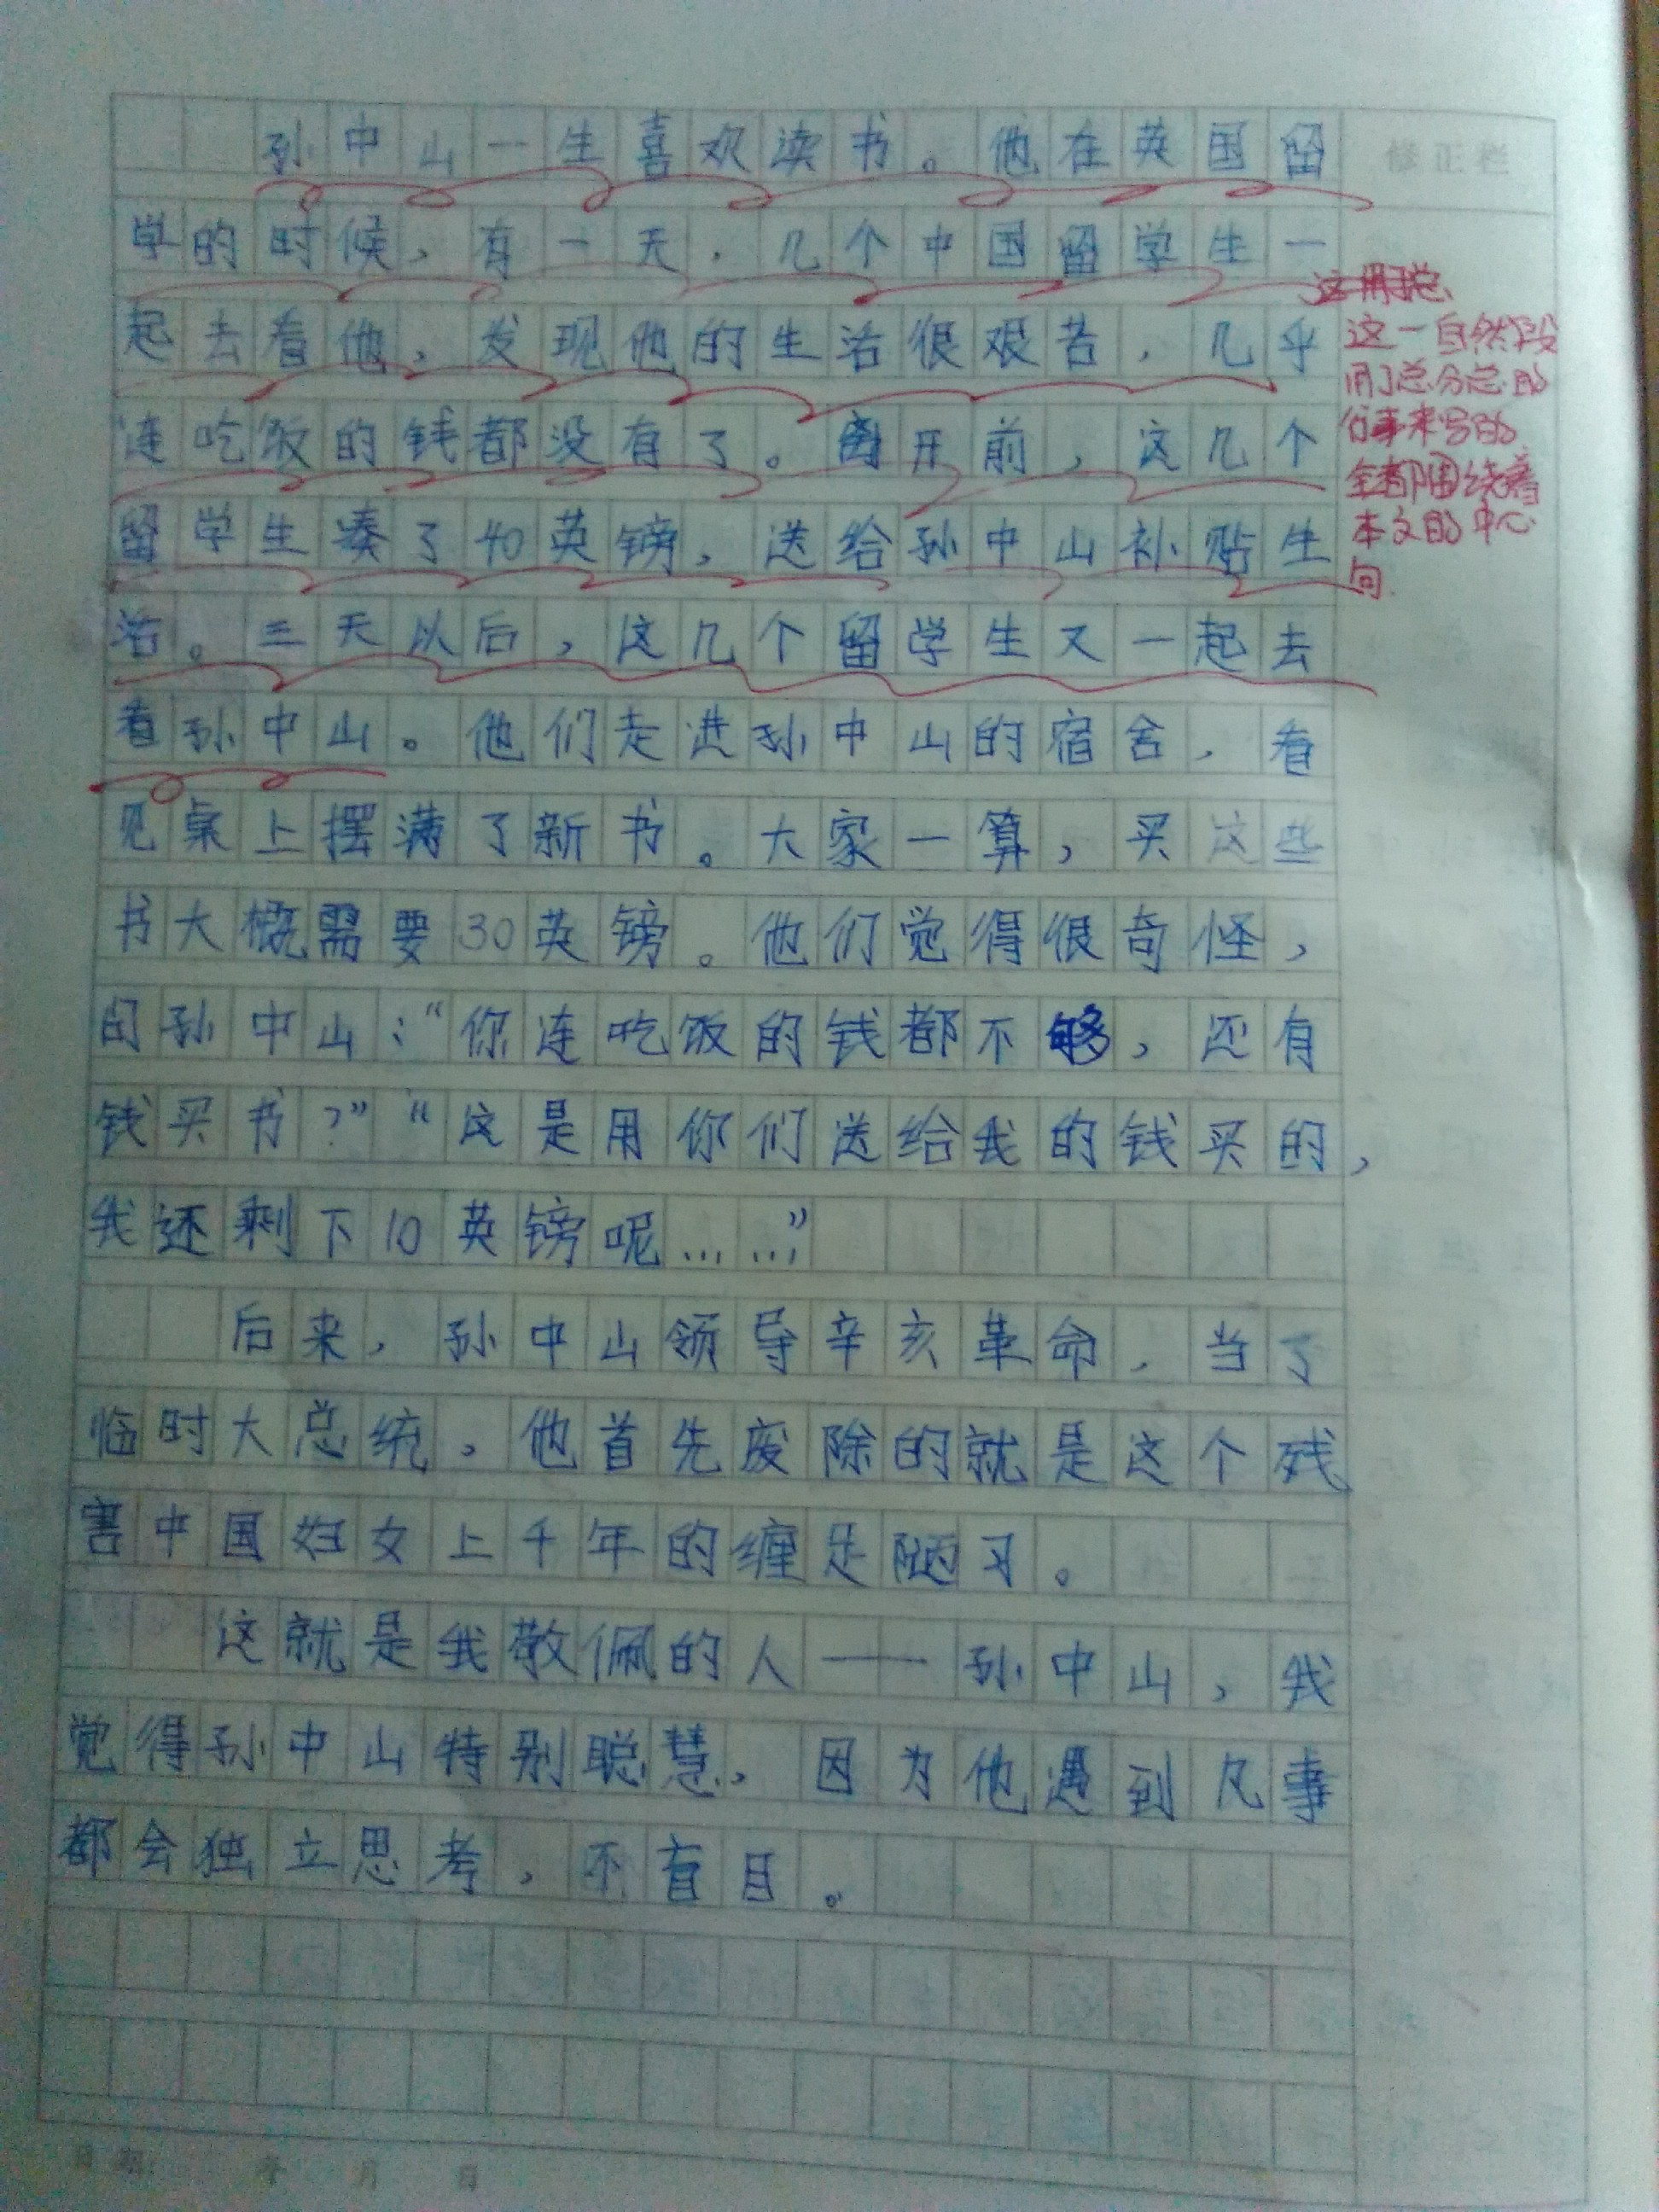 孙中山一生喜欢读书。他在英国留
修正栏
学的时候，有一天，几个中国留学生一
起去看他，发现他的生活很艰苦，几乎
连吃饭的钱都没有了。离开前，这几个
留学生凑了40英镑，送给孙中山补贴生
活。三天以后，这几个留学生又一起去
看孙中山。他们走进孙中山的宿舍，看
见桌上摆满了新书。大家一算，买这些
书大概需要30英镑。他们觉得很奇怪，
问孙中山：“你连吃饭的钱都不够，还有
钱买书？”“这是用你们送给我的钱买的，
我还剩下10英镑呢……”
后来，孙中山领导辛亥革命，当了
临时大总统，他首先废除的就是这个残
害中国妇女上千年的缠足陋习。
这就是我敬佩的人——孙中山，我
觉得孙中山特别聪慧，因为他遇到凡事
都会独立思考，不盲目。
这一自然段
用了总分总的
来写的
全都围绕着
本文的中心
句
日期： 年 月 日